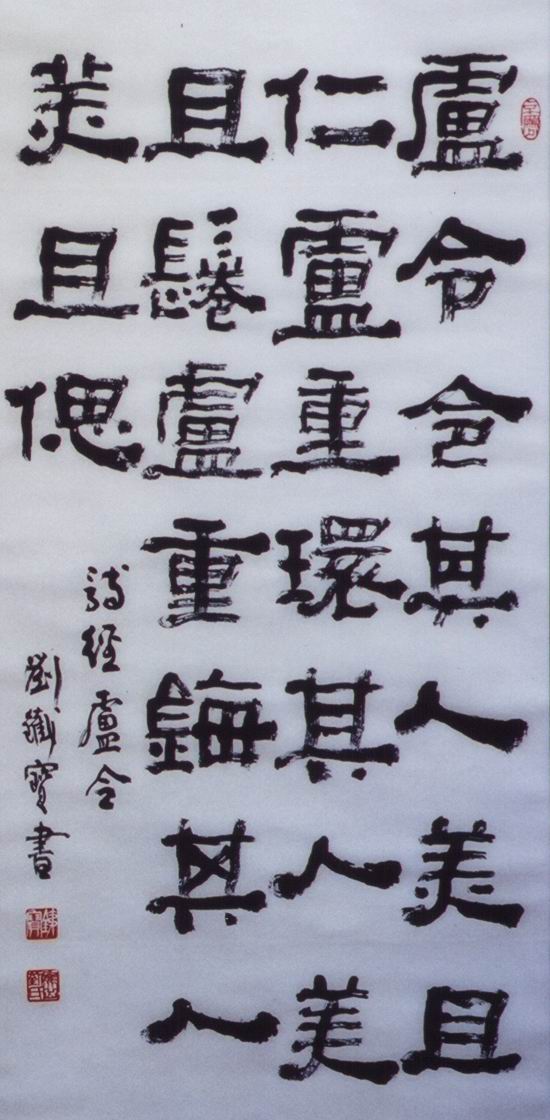 盧令令其人美且
仁盧重環其人美
且鬈盧重鋂其人
美且偲
詩經盧令
劉鐵寶書